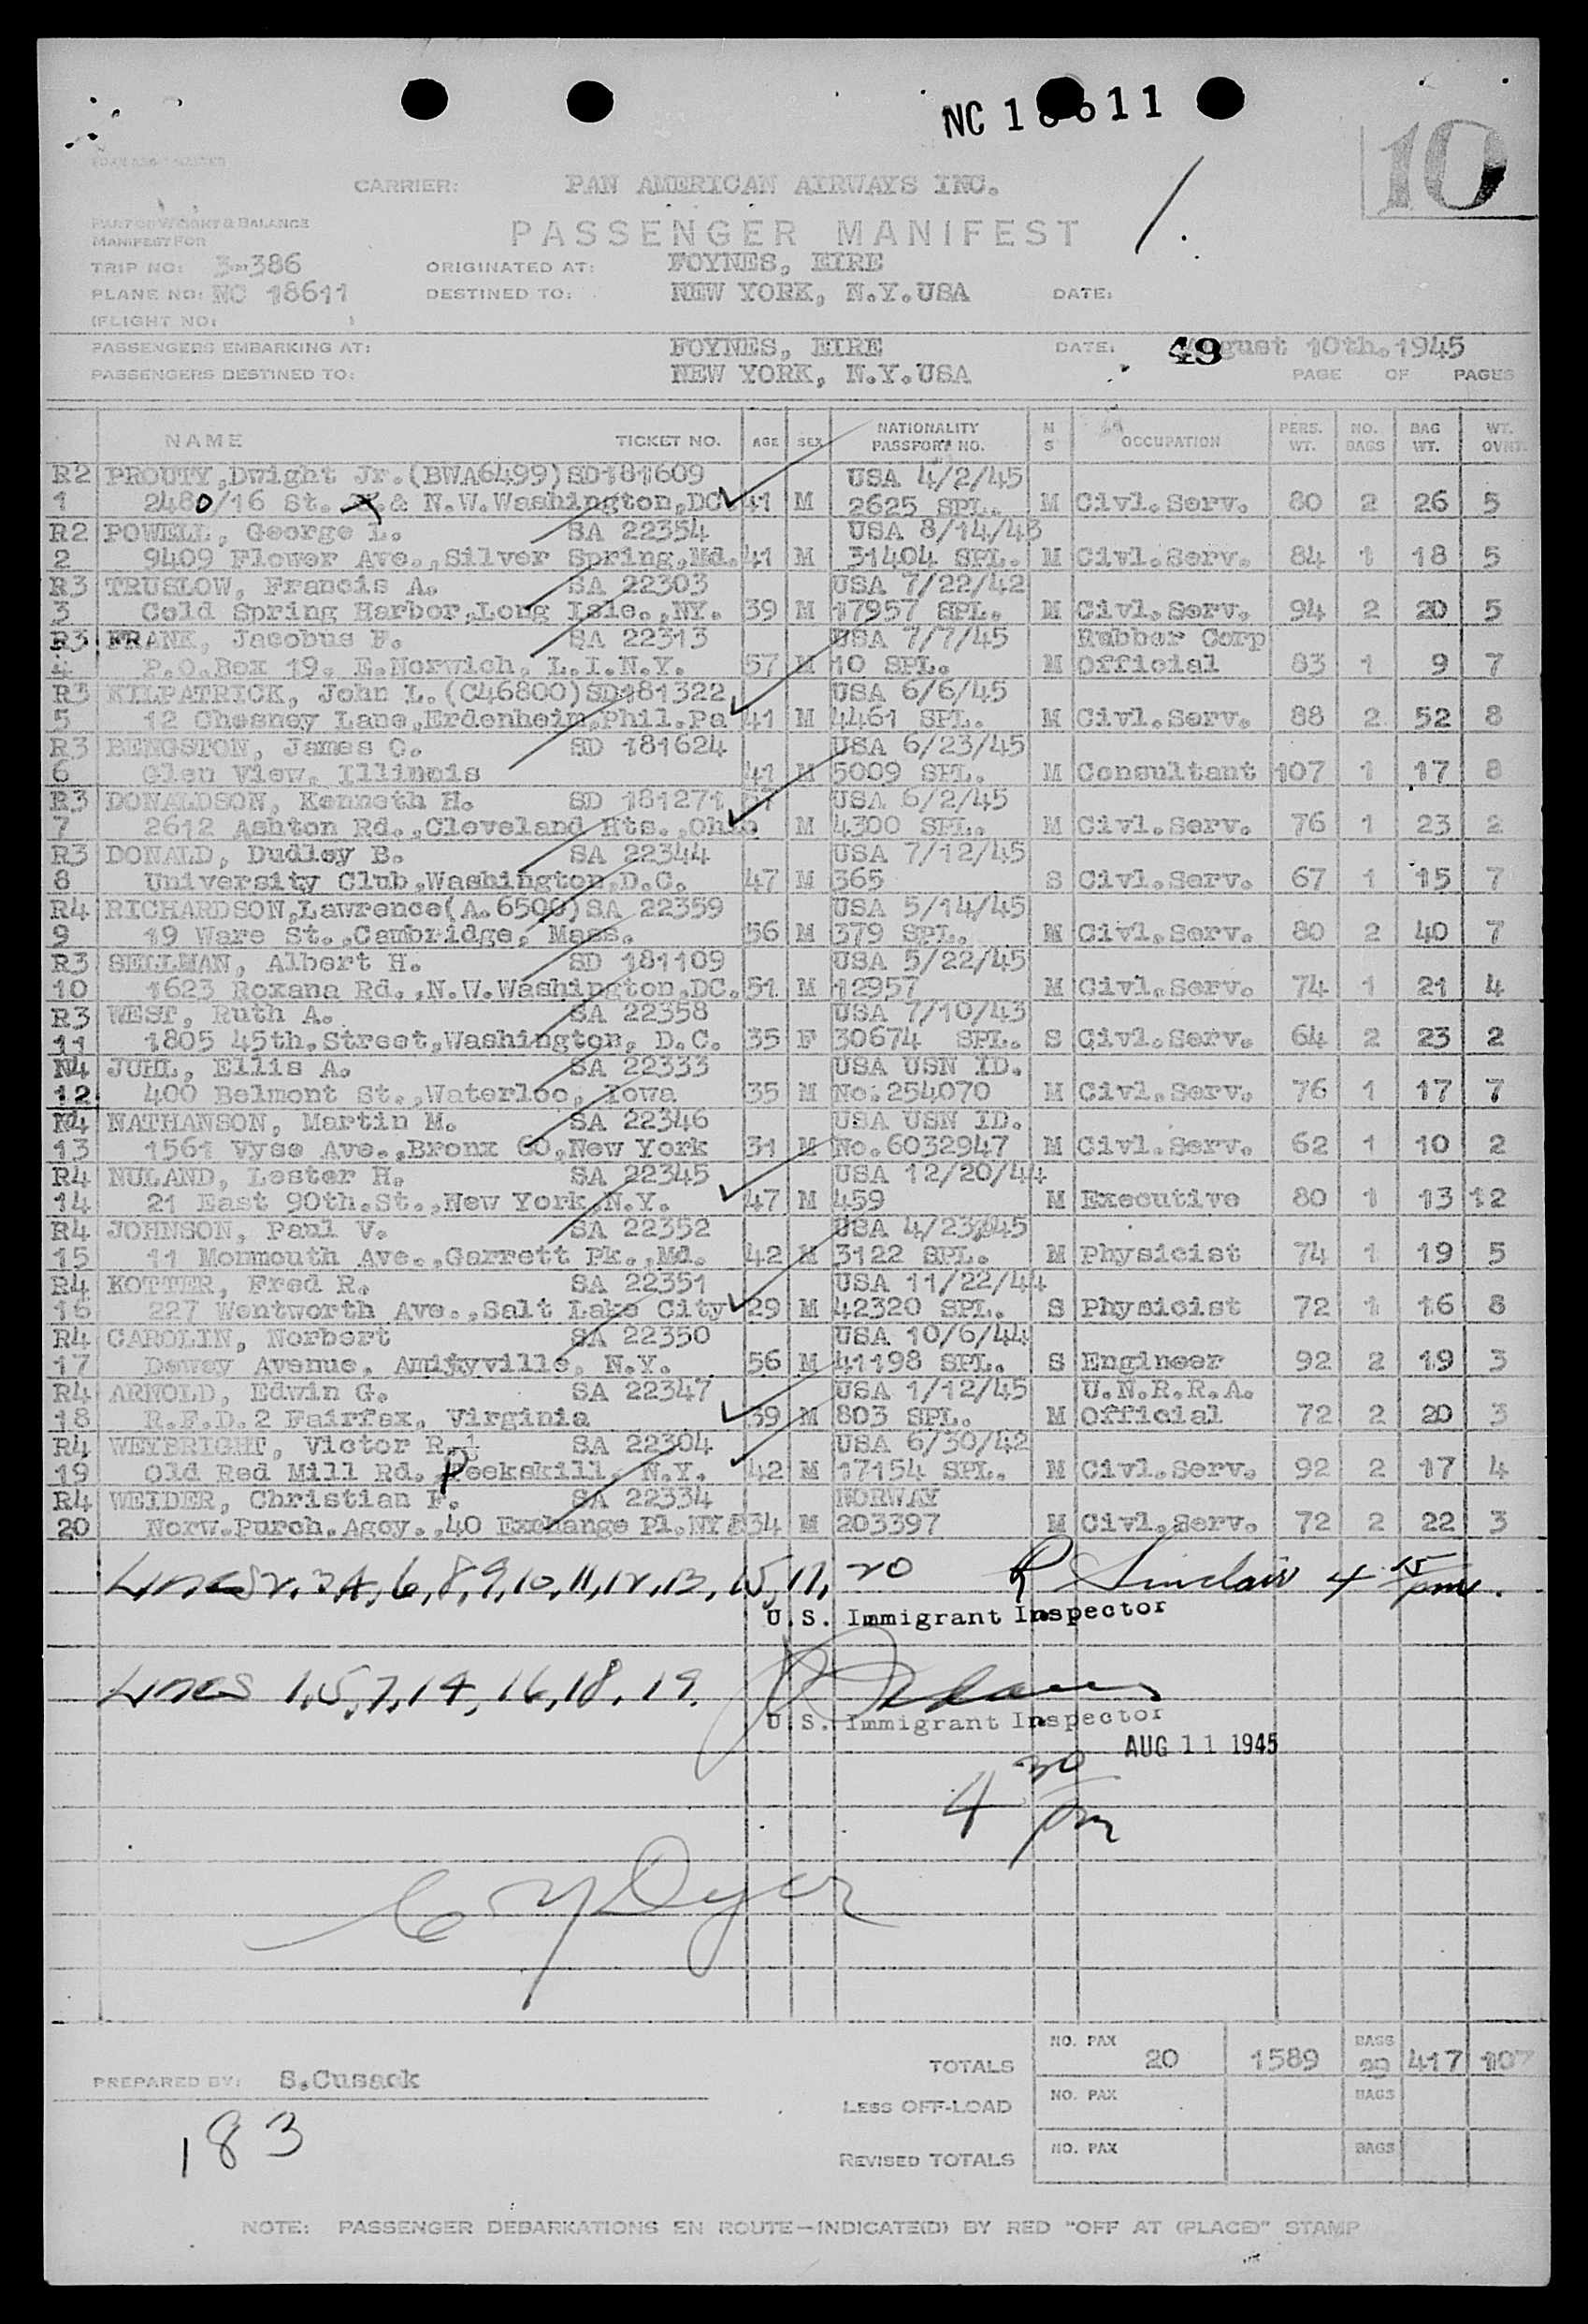 NC 18611
10
CARRIER: PAN AMERICAN AIRWAYS INC.
PART OF WEIGHT & BALANCE
MANIFEST FOR
PASSENGER MANIFEST
TRIP NO: 3-386 ORIGINATED AT: FOYNES, EIRE
PLANE NO: NC 18611 DESTINED TO: NEW YORK, N.Y.USA DATE:
(FLIGHT NO: )
PASSENGERS EMBARKING AT: FOYNES, EIRE DATE: 49 August 10th.1945
PASSENGERS DESTINED TO: NEW YORK, N.Y.USA PAGE OF PAGES
NAME TICKET NO. AGE SEX NATIONALITY PASSPORT NO. M S OCCUPATION PERS. WT. NO. BAGS BAG WT. WT. OVNT.
R2 PROUTY,Dwight Jr.(BWA6499)SD181609 USA 4/2/45
1 2480/16 St. & N.W.Washington,DC. 41 M 2625 SPL. M Civl.Serv. 80 2 26 5
R2 POWELL, George L. SA 22354 USA 8/14/43
2 9409 Flower Ave.,Silver Spring,Md. 41 M 31404 SPL. M Civl.Serv. 84 1 18 5
R3 TRUSLOW, Francis A. SA 22303 USA 7/22/42
3 Cold Spring Harbor,Long Isle.,NY. 39 M 17957 SPL. M Civl.Serv. 94 2 20 5
R3 FRANK, Jacobus F. SA 22313 USA 7/7/45 Rubber Corp
4 P.O.Box 19. E.Norwich, L.I.N.Y. 57 M 10 SPL. M Official 83 1 9 7
R3 KILPATRICK, John L.(C46800)SD181322 USA 6/6/45
5 12 Chesney Lane,Erdenheim,Phil.Pa 41 M 4461 SPL. M Civl.Serv. 88 2 52 8
R3 BENGSTON, James C. SD 181624 USA 6/23/45
6 Glen View, Illinois 41 M 5009 SPL. M Consultant 107 1 17 8
R3 DONALDSON, Kenneth H. SD 181271 57 USA 6/2/45
7 2612 Ashton Rd.,Cleveland Hts.,Ohio M 4300 SPL. M Civl.Serv. 76 1 23 2
R3 DONALD, Dudley B. SA 22344 USA 7/12/45
8 University Club,Washington,D.C. 47 M 365 S Civl.Serv. 67 1 15 7
R4 RICHARDSON,Lawrence(A.6500)SA 22359 USA 5/14/45
9 19 Ware St.,Cambridge, Mass. 56 M 379 SPL. M Civl.Serv. 80 2 40 7
R3 SELLMAN, Albert H. SD 181109 USA 5/22/45
10 1623 Roxana Rd.,N.W.Washington,DC. 51 M 12957 M Civl.Serv. 74 1 21 4
R3 WEST, Ruth A. SA 22358 USA 7/10/43
11 1805 45th.Street,Washington, D.C. 35 F 30674 SPL. S Civl.Serv. 64 2 23 2
N4 JUHL, Ellis A. SA 22333 USA USN ID.
12 400 Belmont St.,Waterloo, Iowa 35 M No.254070 M Civl.Serv. 76 1 17 7
N4 NATHANSON, Martin M. SA 22346 USA USN ID.
13 1561 Vyse Ave.,Bronx 60,New York 31 M No.6032947 M Civl.Serv. 62 1 10 2
R4 NULAND, Lester H. SA 22345 USA 12/20/44
14 21 East 90th.St.,New York,N.Y. 47 M 459 M Executive 80 1 13 12
R4 JOHNSON, Paul V. SA 22352 USA 4/23/45
15 11 Monmouth Ave.,Garrett Pk.,Md. 42 M 3122 SPL. M Physicist 74 1 19 5
R4 KOTTER, Fred R. SA 22351 USA 11/22/44
16 227 Wentworth Ave.,Salt Lake City 29 M 42320 SPL. S Physicist 72 1 16 8
R4 CAROLIN, Norbert SA 22350 USA 10/6/44
17 Dewey Avenue, Amityville, N.Y. 56 M 41198 SPL. S Engineer 92 2 19 3
R4 ARNOLD, Edwin G. SA 22347 USA 1/12/45 U.N.R.R.A.
18 R.F.D.2 Fairfax, Virginia 39 M 803 SPL. M Official 72 2 20 3
R4 WEYBRIGHT, Victor R. SA 22304 USA 6/30/42
19 Old Red Mill Rd. Peekskill, N.Y. 42 M 17154 SPL. M Civl.Serv. 92 2 17 4
R4 WEIDER, Christian F. SA 22334 NORWAY
20 Norw.Purch.Agcy.,40 Exchange Pl.NY 34 M 203397 M Civl.Serv. 72 2 22 3
Lines 2,3,4,6,8,9,10,11,12,13,15,17,20 R Sinclair 4 15 pm.
U.S. Immigrant Inspector
Lines 1,5,7,14,16,18,19.
U.S. Immigrant Inspector
AUG 11 1945
4 30 pm
Dyer
NO. PAX BAGS
TOTALS 20 1589 29 417 107
PREPARED BY: S.Cusack
LESS OFF-LOAD NO. PAX BAGS
183
REVISED TOTALS NO. PAX BAGS
NOTE: PASSENGER DEBARKATIONS EN ROUTE—INDICATE(D) BY RED "OFF AT (PLACE)" STAMP